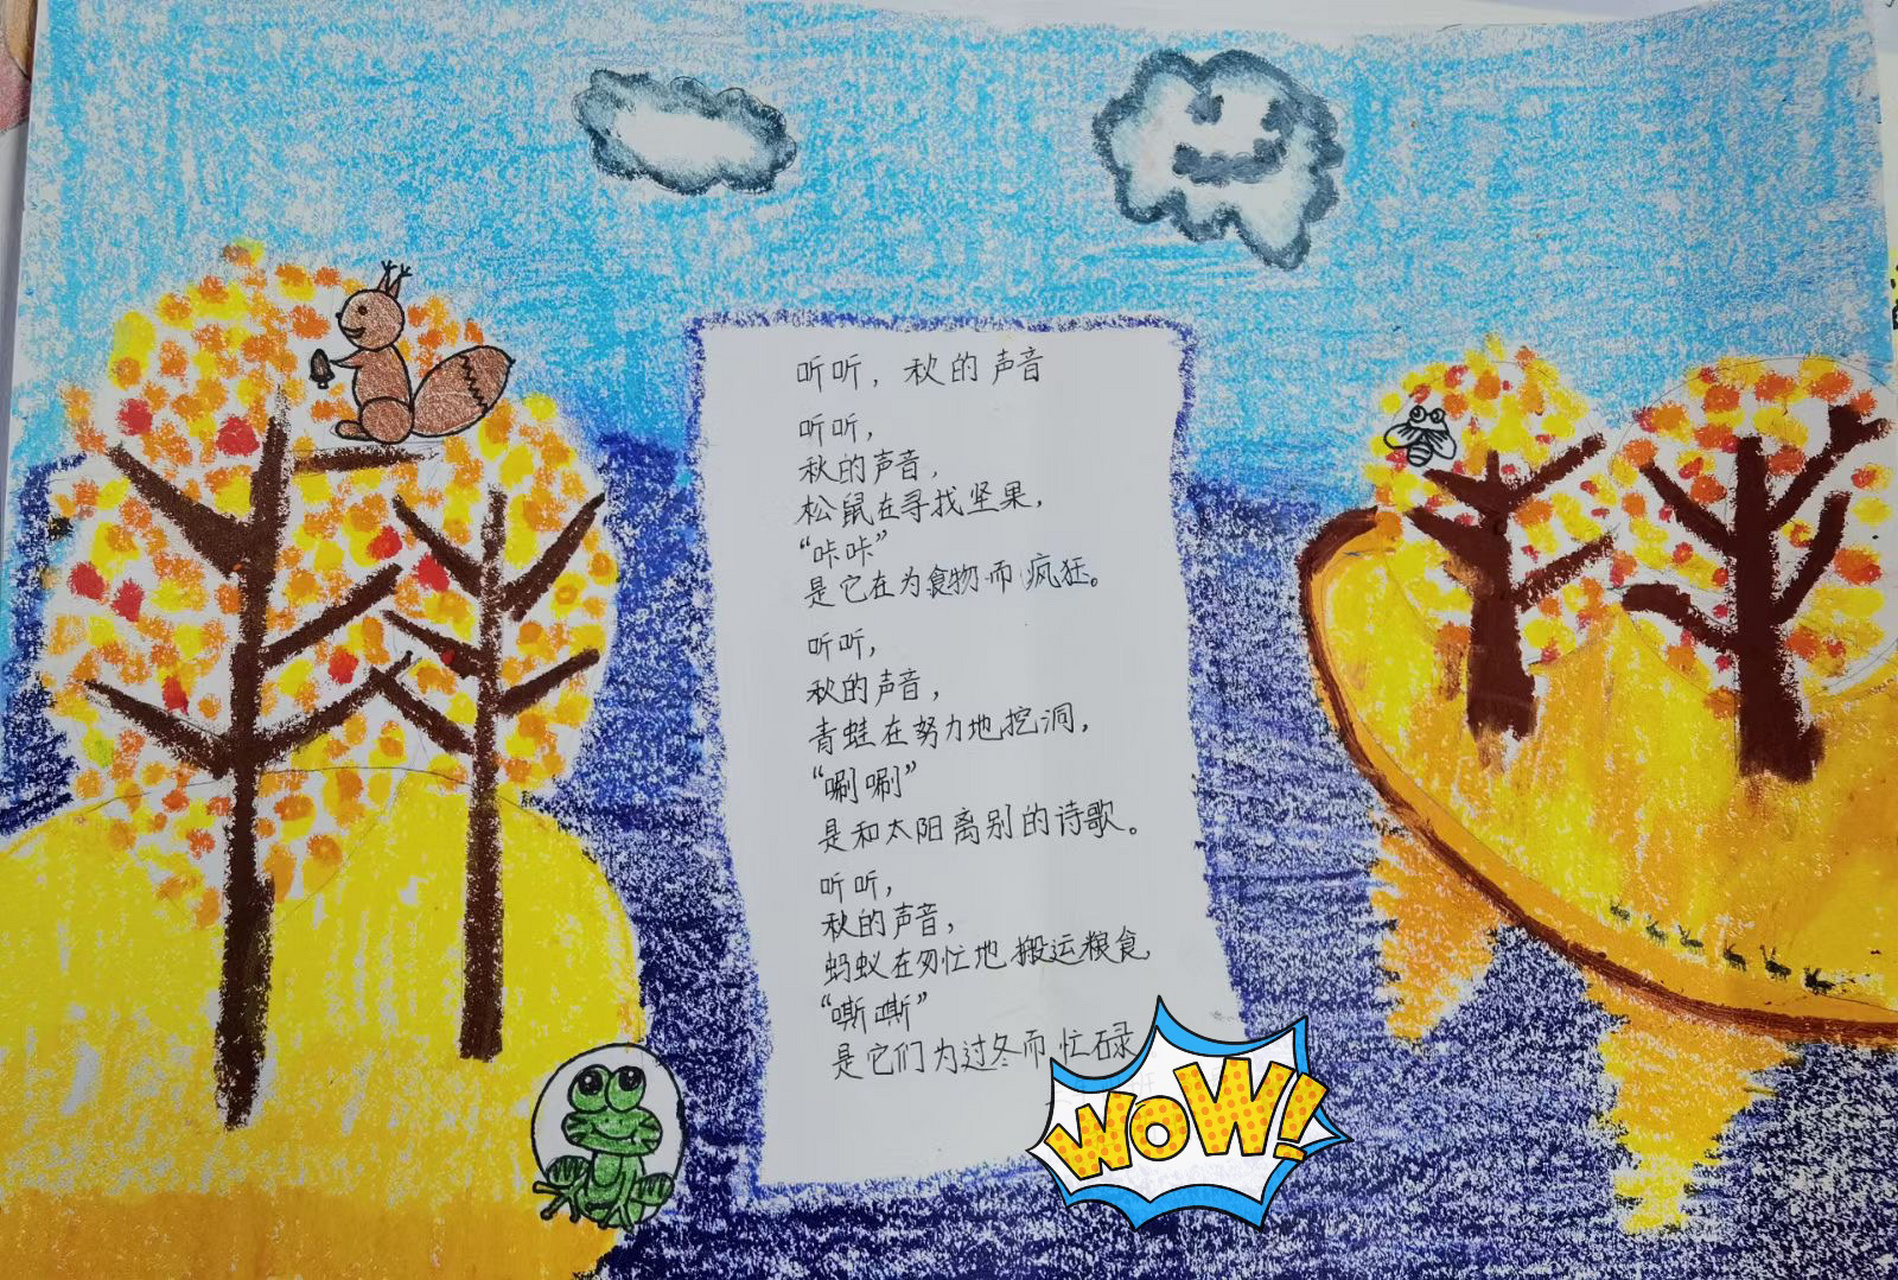 听听，秋的声音
听听，
秋的声音，
松鼠在寻找坚果，
“咔咔”
是它在为食物而疯狂。
听听，
秋的声音，
青蛙在努力地挖洞，
“唰唰”
是和太阳离别的诗歌。
听听，
秋的声音，
蚂蚁在匆忙地搬运粮食，
“嘶嘶”
是它们为过冬而忙碌
WOW!